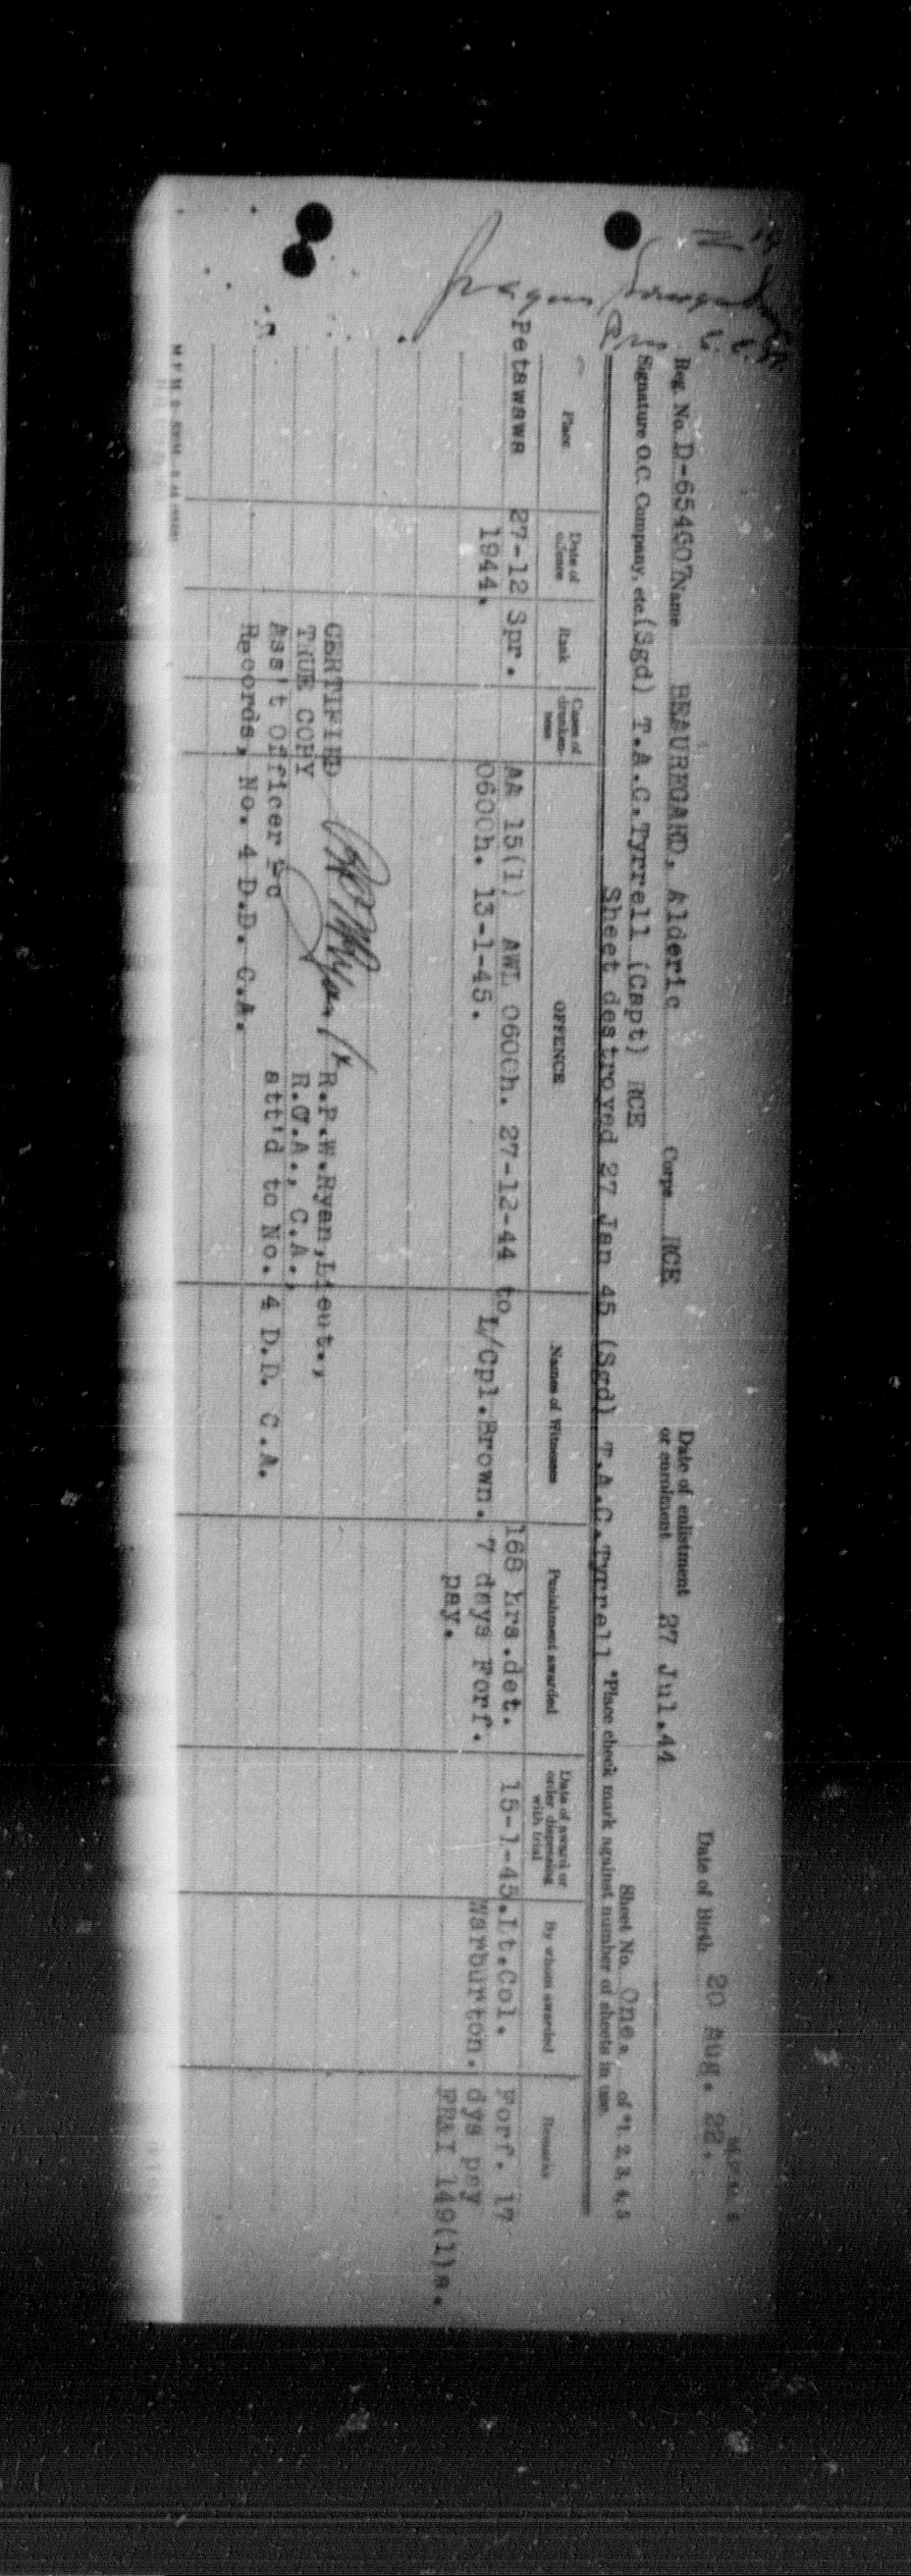 Date of Birth 20 Aug. 22.
Reg. No. D-654607 Name BEAUREGARD, Alderic Corps RCE Date of enlistment or enrolment 27 Jul.44
Signature O.C. Company, etc. (Sgd) T.A.C.Tyrrell (Capt) RCE Sheet No. One. of *1, 2, 3, 4, 5
Sheet destroyed 27 Jan 45 (Sgd) T.A.C.Tyrrell *Place check mark against number of sheets in use.
Place Date of offence Rank Cases of drunken-ness OFFENCE Names of Witnesses Punishment awarded Date of award or order dispensing with trial By whom awarded Remarks
Petawawa 27-12 Spr. AA 15(1) AWL 0600h. 27-12-44 to 168 hrs.det. 15-1-45. Lt.Col. Forf. 17
1944. 0600h. 13-1-45. L/Cpl.Brown. 7 days Forf. Warburton. dys pay
pay. FR&I 149(1)a.
CERTIFIED R.P.W.Ryan,Lieut.,
TRUE COPY R.C.A., C.A.,
Ass't Officer i-c att'd to No. 4 D.D. C.A.
Records, No. 4 D.D. C.A.